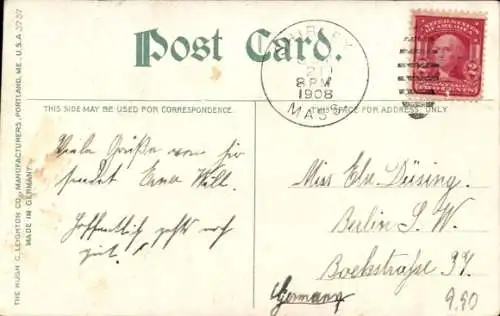 Post Card.
SHIRLEY
8 PM
1908
MASS.
UNITED STATES
OF AMERICA
2
THIS SIDE MAY BE USED FOR CORRESPONDENCE.
THIS SPACE FOR ADDRESS ONLY
THE HUGH C. LEIGHTON CO., MANUFACTURERS, PORTLAND, ME., U.S.A.
MADE IN GERMANY
Viele Grüße von hier
sendet Erna Will.
Hoffentlich geht's noch
gut!
Miss Els. Düsing.
Berlin S. W.
Germany
9.90